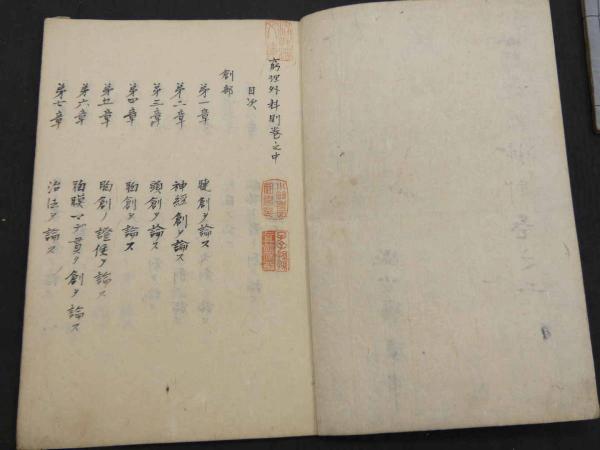 窮理外科則巻之中
目次
創部
第一章 腱創ヲ論ス
第二章 神経創ヲ論ス
第三章 頭創ヲ論ス
第四章 胸創ヲ論ス
第五章 胸創ノ證候ヲ論ス
第六章 胸膜マテ貫ク創ヲ論ス
第七章 治法ヲ論ス